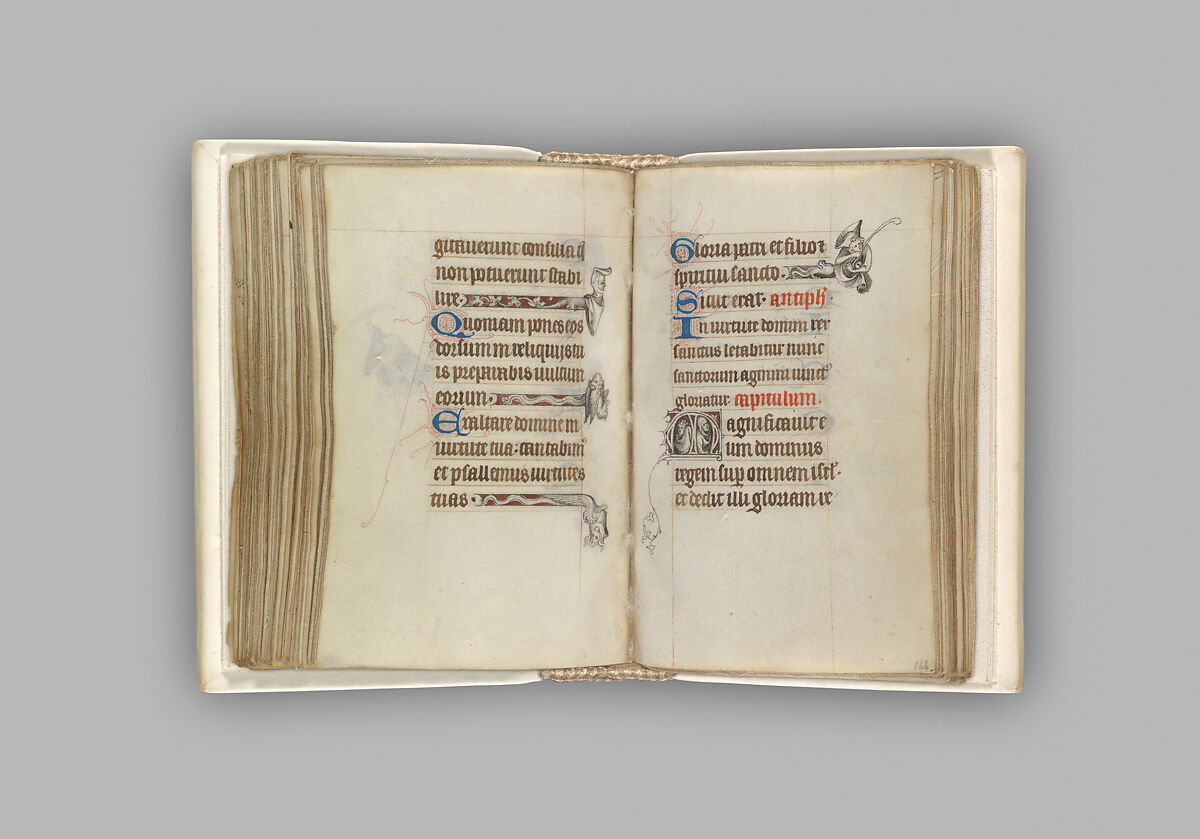 gitaverunt consilia q̄
non potuerunt stabi
lire.
Quoniam pones eos
dorsum in reliquiis tu
is preparabis vultum
eorum.
Exaltare domine in
virtute tua. cantabim᷒
et psallemus virtutes
tuas.
Gloria patri et filio ⁊
spiritui sancto.
Sicut erat. antiph᷒.
In virtute domini rex
sanctus letabitur nunc
sanctorum agmini iunct᷒
gloriatur capitulum.
Magnificavit e
um dominus
regem sup omnem isr̄l.
et dedit illi gloriam re
164